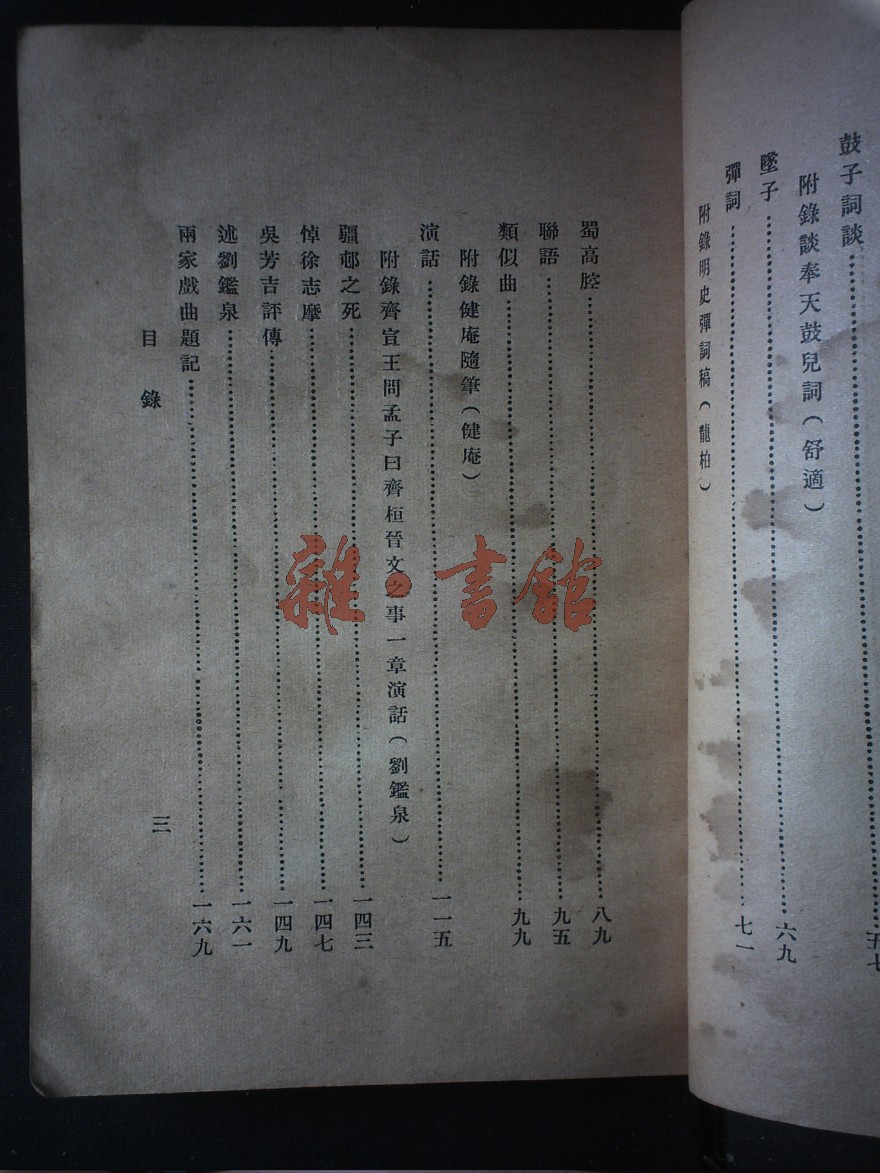 鼓子詞談……五七
附錄談奉天鼓兒詞(舒適)
墜子……六九
彈詞……七一
附錄明史彈詞稿(龍柏)
蜀高腔……八九
聯語……九五
類似曲……九九
附錄健庵隨筆(健庵)
演話……一一五
附錄齊宣王問孟子曰齊桓晉文之事一章演話(劉鑑泉)
疆邨之死……一四三
悼徐志摩……一四七
吳芳吉評傳……一四九
述劉鑑泉……一六一
兩家戲曲題記……一六九
目錄
三
雜·書館